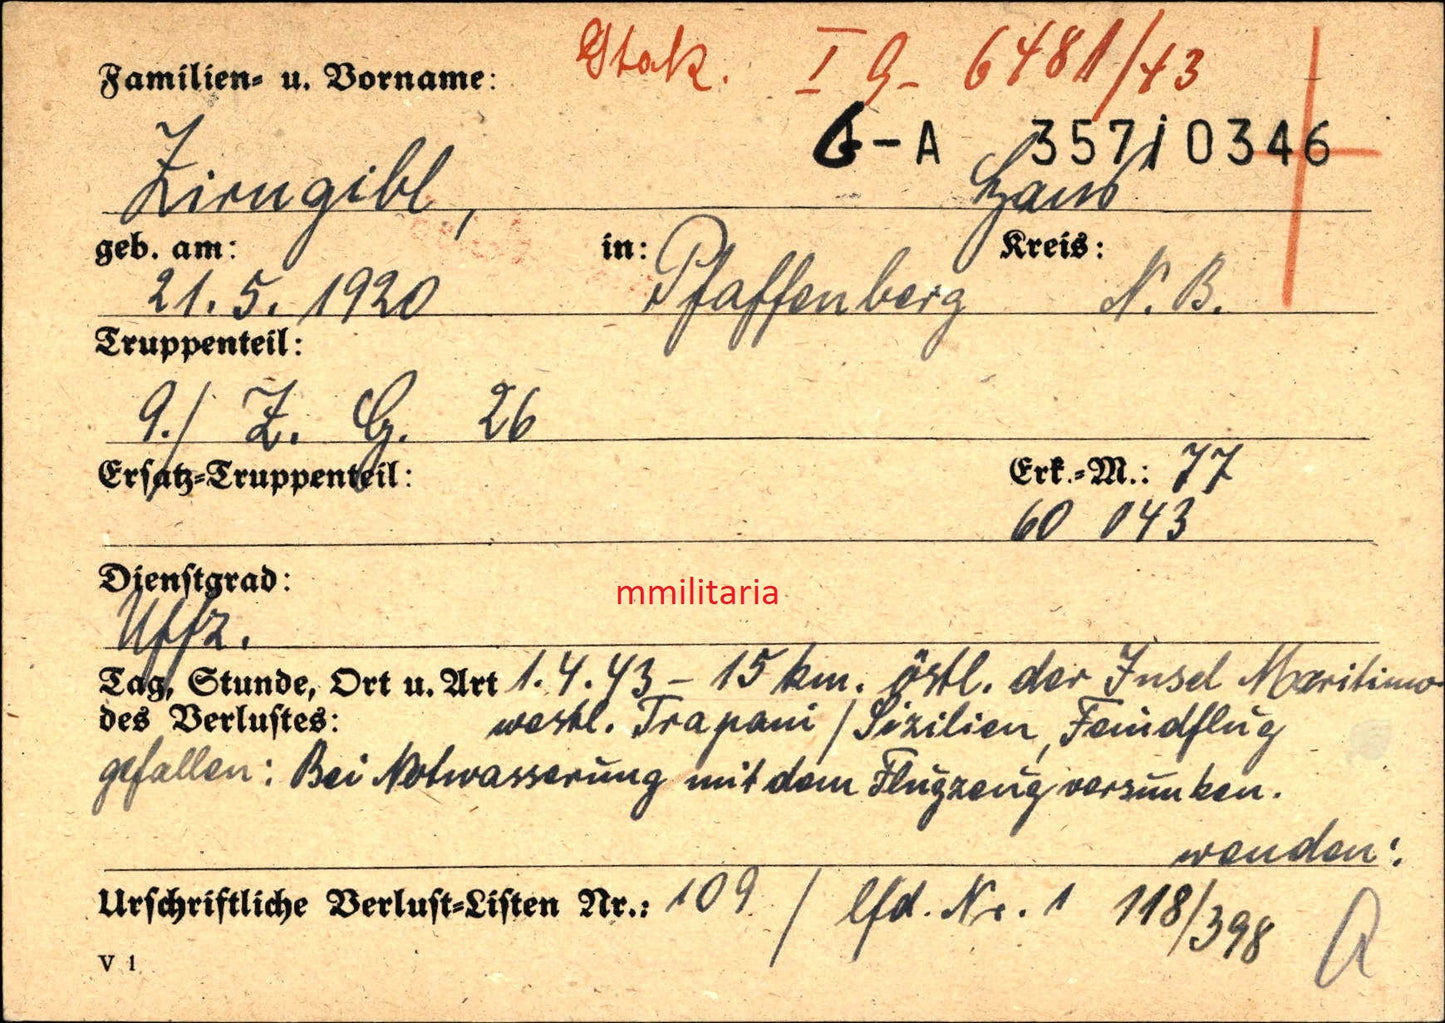 Gtak. I G- 6481/43
Familien- u. Vorname:
G-A 357/0346
Zirngibl, Hans
geb. am: in: Kreis:
21. 5. 1920 Pfaffenberg N. B.
Truppenteil:
9./ Z. G. 26
Ersatz-Truppenteil: Erk.-M.: 77
60 043
Dienstgrad:
mmilitaria
Uffz.
Tag, Stunde, Ort u. Art 1. 4. 43 - 15 km. östl. der Insel Maritimo
des Verlustes: westl. Trapani / Sizilien, Feindflug
gefallen: Bei Notwasserung mit dem Flugzeug versunken.
wenden!
Urschriftliche Verlust-Listen Nr.: 109 / lfd. Nr. 1 118/398
V 1